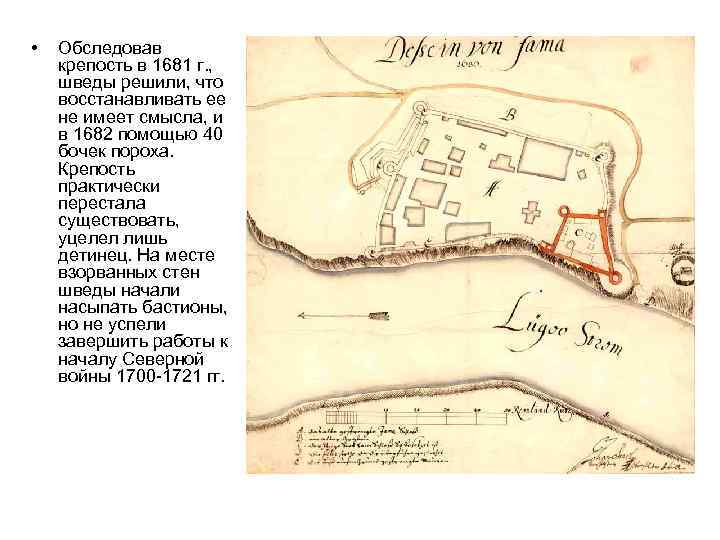 • Обследовав
крепость в 1681 г. ,
шведы решили, что
восстанавливать ее
не имеет смысла, и
в 1682 помощью 40
бочек пороха.
Крепость
практически
перестала
существовать,
уцелел лишь
детинец. На месте
взорванных стен
шведы начали
насыпать бастионы,
но не успели
завершить работы к
началу Северной
войны 1700-1721 гг.
Desse in von Jama
1680.
B
A
C
Lügoo Strom
Renland Rutz
A
B
C